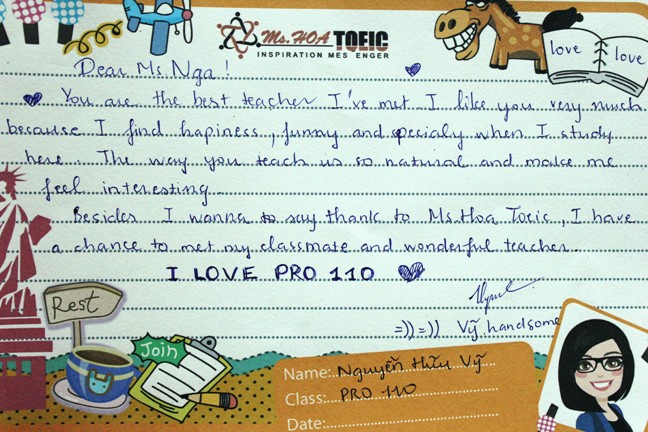 Ms.HOA TOEIC
INSPIRATION MES ENGER
love love
Dear Ms. Nga !
You are the best teacher I've met. I like you very much
because I find hapiness, funny and specialy when I study
here. The way you teach us so natural and make me
feel interesting.
Besides I wanna to say thank to Ms.Hoa Toeic, I have
a chance to met my classmate and wonderful teacher.
I LOVE PRO 110
=)) =)) Vỹ handsome
Rest
Join
Name: Nguyễn Hữu Vỹ
Class: PRO 110
Date: